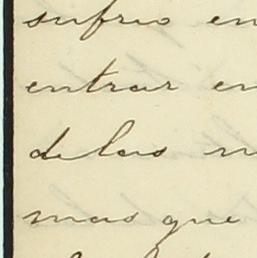 sufrio en
entrar en
de las
mas que